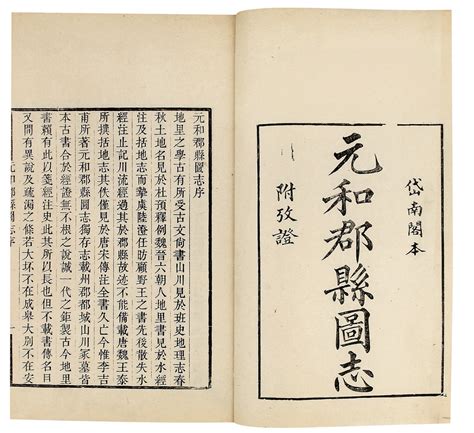 岱南閣本
元和郡縣圖志
附攷證
元和郡縣圖志序
地里之學古有所受古文尙書山川見於班史地理志春
秋土地名見於杜預釋例魏晉六朝人地里書見於水經
注及括地志而摯虞陸澄任昉顧野王之書先後散失水
經注止記川流經過其於郡縣故迹不能備載唐魏王泰
所撰括地志其佚僅見於唐宋傳注全書久亡今惟李吉
甫所著元和郡縣圖志獨存志載州郡都城山川冢墓皆
本古書合於經證無不根之說誠一代之鉅製古今地里
書賴有此以箋經注史此其所以長也但不載書傳名目
又間有異說及疏漏之條若大坏不在成皋大別不在安